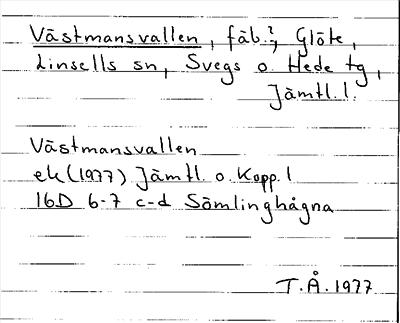 Västmansvallen, fäb.?, Glöte,
Linsells sn, Svegs o. Hede tg,
Jämtl. l.
Västmansvallen
ek (1977) Jämtl. o. Kopp. l
16D 6-7 c-d Sömlinghågna
T.Å. 1977